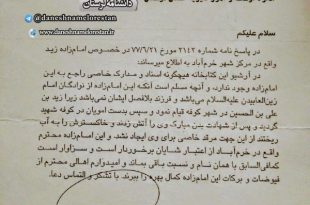 دانشنامه لرستان
@ daneshnamelorestan
www.daneshnamelorestan.ir
سلام علیکم
در پاسخ نامه شماره ۲۱۴۲ مورخ ۷۷/۶/۲۱ در خصوص امامزاده زید
واقع در مرکز شهر خرم‌آباد به اطلاع میرساند:
در آرشیو این کتابخانه هیچگونه اسناد و مدارک خاصی راجع به این
امامزاده وجود ندارد، و آنچه مسلم است این امامزاده از نوادگان امام
زین‌العابدین علیه‌السلام می‌باشد و فرزند بلافصل ایشان نمی‌باشد زیرا زید بن
علی بن الحسین در شهر کوفه قیام نمود و سپس بدست امویان در کوفه شهید
گردید و پس از شهادت بدن مبارک وی را آتش زدند و خاکسترش را به آب
ریختند از این جهت مرقد خاصی برای وی ایجاد نشد. و این امامزاده محترم
واقع در خرم‌آباد از اعتبار شایان برخوردار است و سزاوار است
کمافی‌السابق با همان نام و نسبت باقی بماند و امیدوارم اهالی محترم از
فیوضات و برکات این امامزاده کمال بهره را ببرند. با تشکر و التماس دعا.